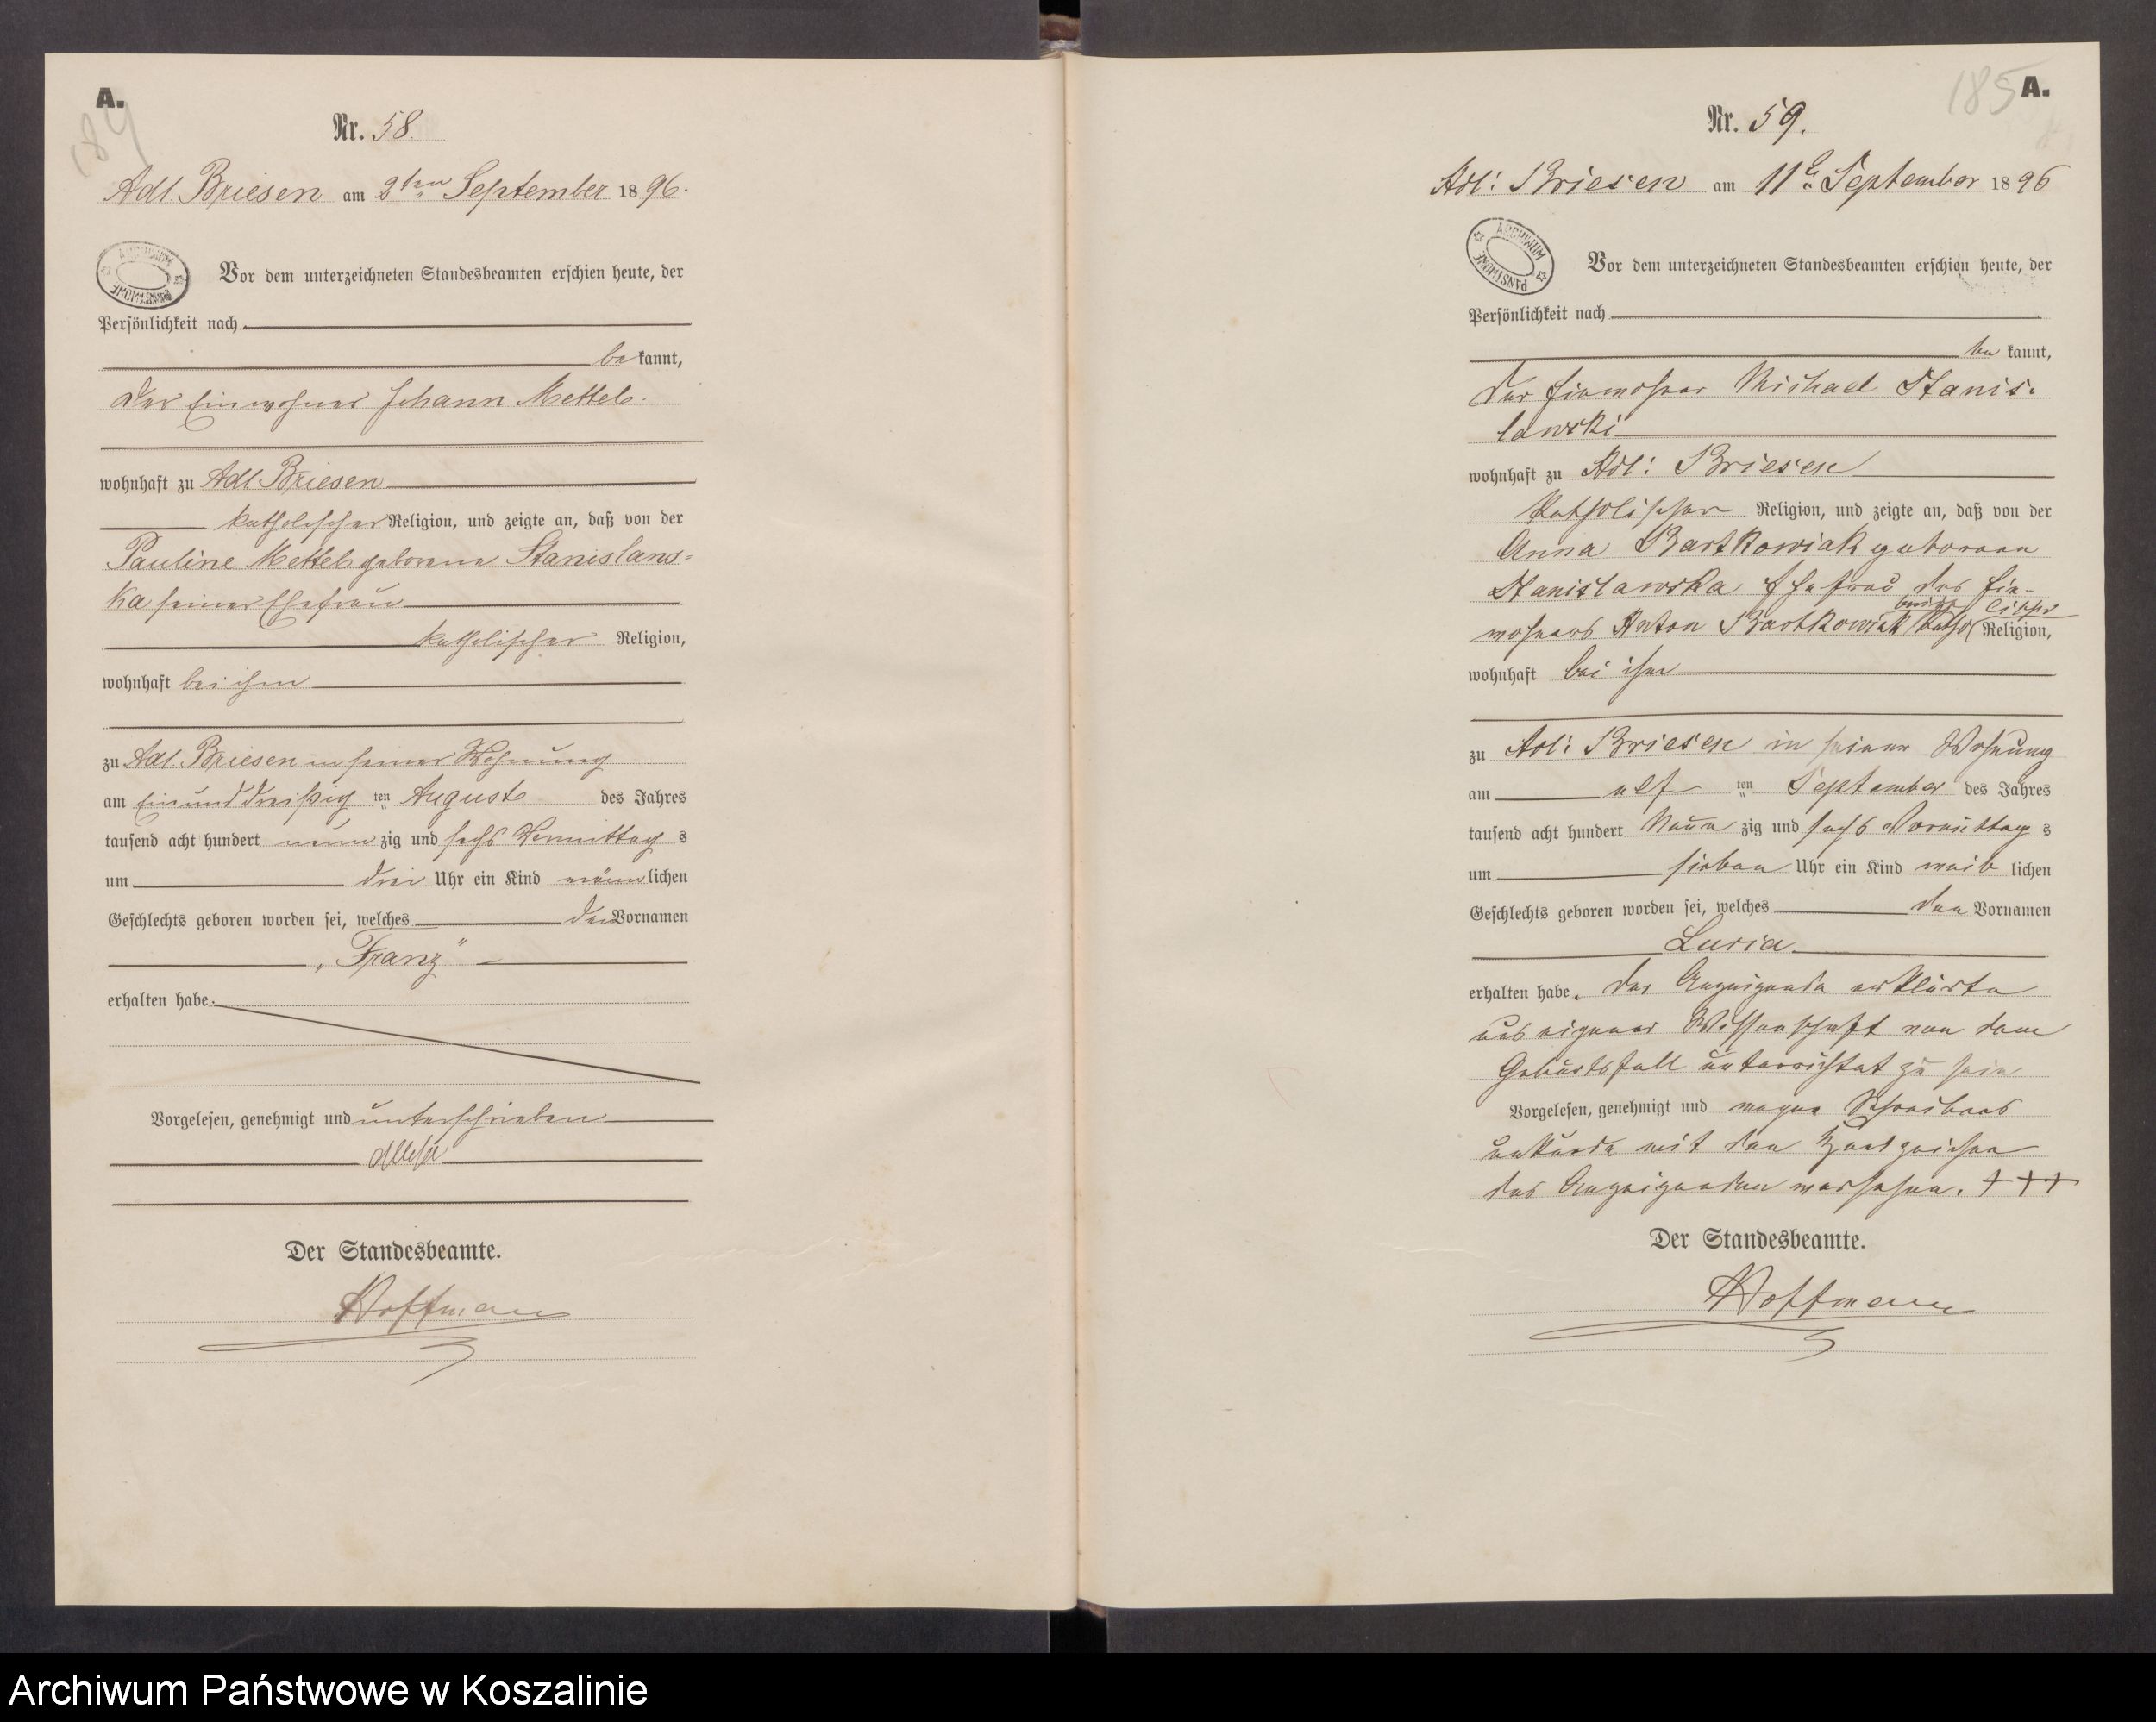 A.
184
Nr. 58.
Adl. Briesen am 2ten September 1896.
ARCHIWUM PAŃSTWOWE
Vor dem unterzeichneten Standesbeamten erschien heute, der
Persönlichkeit nach
be kannt,
der Einwohner Johann Metteb.
wohnhaft zu Adl. Briesen
katholischer Religion, und zeigte an, daß von der
Pauline Metteb geborene Stanislaws=
ka seiner Ehefrau
katholischer Religion,
wohnhaft bei ihm
zu Adl. Briesen in seiner Wohnung
am ein und dreißig ten Auguste des Jahres
tausend acht hundert neun zig und sechs Vormittag s
um drei Uhr ein Kind männ lichen
Geschlechts geboren worden sei, welches den Vornamen
„Franz“
erhalten habe.
Vorgelesen, genehmigt und unterschrieben
Der Standesbeamte.
Hoffmann
185 A.
Nr. 59.
Adl: Briesen am 11t. September 1896
ARCHIWUM PAŃSTWOWE
Vor dem unterzeichneten Standesbeamten erschien heute, der
Persönlichkeit nach
be kannt,
der Einwohner Michael Stanis-
lawski
wohnhaft zu Adl: Briesen
katholischer Religion, und zeigte an, daß von der
Anna Bartkowiak geborenen
Stanislawska Ehefrau des Ein-
lischer
wohners Anton Bartkowiak katho Religion,
wohnhaft bei ihm
zu Adl: Briesen in seiner Wohnung
am elf ten September des Jahres
tausend acht hundert Neun zig und sechs Vormittag s
um sieben Uhr ein Kind weib lichen
Geschlechts geboren worden sei, welches den Vornamen
Lucia
erhalten habe. Der Anzeigende erklärte
aus eigener Wissenschaft von dem
Geburtsfall unterrichtet zu sein
Vorgelesen, genehmigt und wegen Schreibens
unkunde mit den Handzeichen
des Anzeigenden versehen. +++
Der Standesbeamte.
Hoffmann
Archiwum Państwowe w Koszalinie